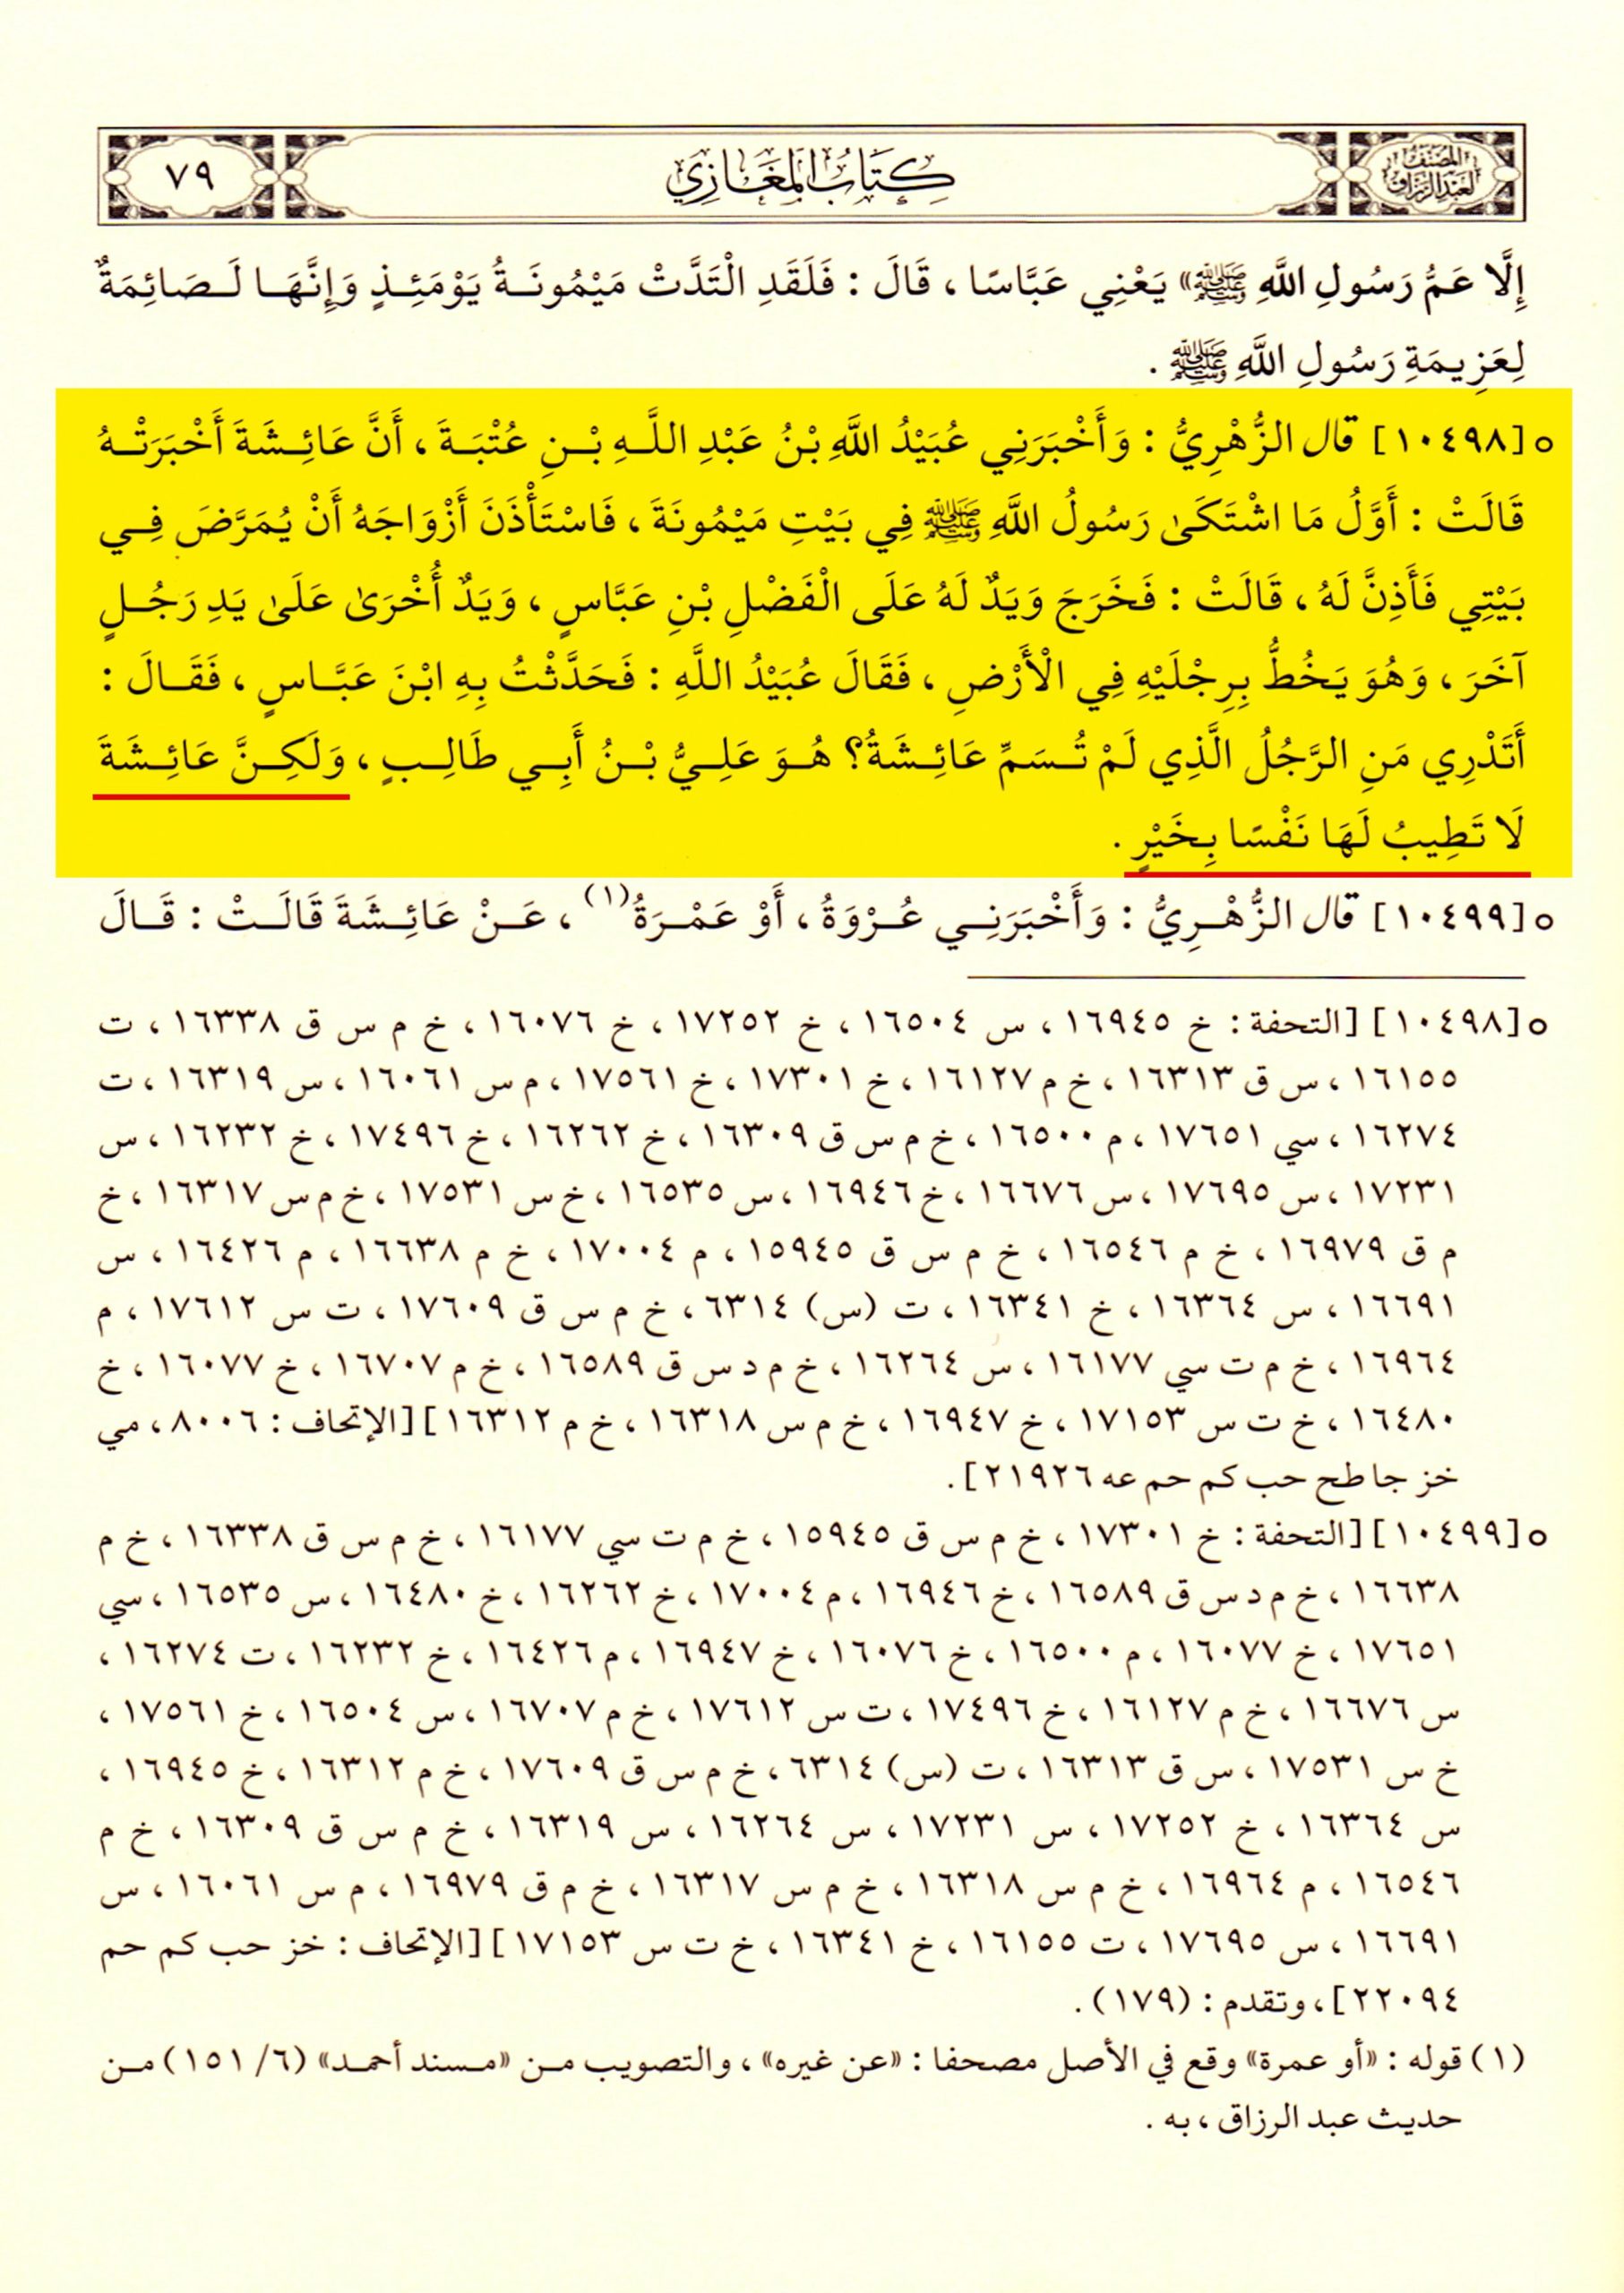 المصنف لعبد الرزاق
كتاب المغازي
٧٩
إِلَّا عَمُّ رَسُولِ اللَّهِ ﷺ» يَعْنِي عَبَّاسًا، قَالَ: فَلَقَدِ الْتَدَّتْ مَيْمُونَةُ يَوْمَئِذٍ وَإِنَّهَا لَصَائِمَةٌ
لِعَزِيمَةِ رَسُولِ اللَّهِ ﷺ.
○ [١٠٤٩٨] قال الزُّهْرِيُّ: وَأَخْبَرَنِي عُبَيْدُ اللَّهِ بْنُ عَبْدِ اللَّهِ بْنِ عُتْبَةَ، أَنَّ عَائِشَةَ أَخْبَرَتْهُ
قَالَتْ: أَوَّلُ مَا اشْتَكَىٰ رَسُولُ اللَّهِ ﷺ فِي بَيْتِ مَيْمُونَةَ، فَاسْتَأْذَنَ أَزْوَاجَهُ أَنْ يُمَرَّضَ فِي
بَيْتِي فَأَذِنَّ لَهُ، قَالَتْ: فَخَرَجَ وَيَدٌ لَهُ عَلَى الْفَضْلِ بْنِ عَبَّاسٍ، وَيَدٌ أُخْرَىٰ عَلَىٰ يَدِ رَجُلٍ
آخَرَ، وَهُوَ يَخُطُّ بِرِجْلَيْهِ فِي الْأَرْضِ، فَقَالَ عُبَيْدُ اللَّهِ: فَحَدَّثْتُ بِهِ ابْنَ عَبَّاسٍ، فَقَالَ:
أَتَدْرِي مَنِ الرَّجُلُ الَّذِي لَمْ تُسَمِّ عَائِشَةُ؟ هُوَ عَلِيُّ بْنُ أَبِي طَالِبٍ، وَلَكِنَّ عَائِشَةَ
لَا تَطِيبُ لَهَا نَفْسًا بِخَيْرٍ.
○ [١٠٤٩٩] قال الزُّهْرِيُّ: وَأَخْبَرَنِي عُرْوَةُ، أَوْ عَمْرَةُ(١)، عَنْ عَائِشَةَ قَالَتْ: قَالَ
○ [١٠٤٩٨] [التحفة: خ ١٦٩٤٥، س ١٦٥٠٤، خ ١٧٢٥٢، خ ١٦٠٧٦، خ م س ق ١٦٣٣٨، ت
١٦١٥٥، س ق ١٦٣١٣، خ م ١٦١٢٧، خ ١٧٣٠١، خ ١٧٥٦١، م س ١٦٠٦١، س ١٦٣١٩، ت
١٦٢٧٤، سي ١٧٦٥١، م ١٦٥٠٠، خ م س ق ١٦٣٠٩، خ ١٦٢٦٢، خ ١٧٤٩٦، خ ١٦٢٣٢، س
١٧٢٣١، س ١٧٦٩٥، س ١٦٦٧٦، خ ١٦٩٤٦، س ١٦٥٣٥، خ س ١٧٥٣١، خ م س ١٦٣١٧، خ
م ق ١٦٩٧٩، خ م ١٦٥٤٦، خ م س ق ١٥٩٤٥، م ١٧٠٠٤، خ م ١٦٦٣٨، م ١٦٤٢٦، س
١٦٦٩١، س ١٦٣٦٤، خ ١٦٣٤١، ت (س) ٦٣١٤، خ م س ق ١٧٦٠٩، ت س ١٧٦١٢، م
١٦٩٦٤، خ م ت سي ١٦١٧٧، س ١٦٢٦٤، خ م د س ق ١٦٥٨٩، خ م ١٦٧٠٧، خ ١٦٠٧٧، خ
١٦٤٨٠، خ ت س ١٧١٥٣، خ ١٦٩٤٧، خ م س ١٦٣١٨، خ م ١٦٣١٢] [الإتحاف: ٨٠٠٦، مي
خز جا طح حب كم حم عه ٢١٩٢٦].
○ [١٠٤٩٩] [التحفة: خ ١٧٣٠١، خ م س ق ١٥٩٤٥، خ م ت سي ١٦١٧٧، خ م س ق ١٦٣٣٨، خ م
١٦٦٣٨، خ م د س ق ١٦٥٨٩، خ ١٦٩٤٦، م ١٧٠٠٤، خ ١٦٢٦٢، خ ١٦٤٨٠، س ١٦٥٣٥، سي
١٧٦٥١، خ ١٦٠٧٧، م ١٦٥٠٠، خ ١٦٠٧٦، خ ١٦٩٤٧، م ١٦٤٢٦، خ ١٦٢٣٢، ت ١٦٢٧٤،
س ١٦٦٧٦، خ م ١٦١٢٧، خ ١٧٤٩٦، ت س ١٧٦١٢، خ م ١٦٧٠٧، س ١٦٥٠٤، خ ١٧٥٦١،
خ س ١٧٥٣١، س ق ١٦٣١٣، ت (س) ٦٣١٤، خ م س ق ١٧٦٠٩، خ م ١٦٣١٢، خ ١٦٩٤٥،
س ١٦٣٦٤، خ ١٧٢٥٢، س ١٧٢٣١، س ١٦٢٦٤، س ١٦٣١٩، خ م س ق ١٦٣٠٩، خ م
١٦٥٤٦، م ١٦٩٦٤، خ م س ١٦٣١٨، خ م س ١٦٣١٧، خ م ق ١٦٩٧٩، م س ١٦٠٦١، س
١٦٦٩١، س ١٧٦٩٥، ت ١٦١٥٥، خ ١٦٣٤١، خ ت س ١٧١٥٣] [الإتحاف: خز حب كم حم
٢٢٠٩٤]، وتقدم: (١٧٩).
(١) قوله: «أو عمرة» وقع في الأصل مصحفا: «عن غيره»، والتصويب من «مسند أحمد» (٦/ ١٥١) من
حديث عبد الرزاق، به.